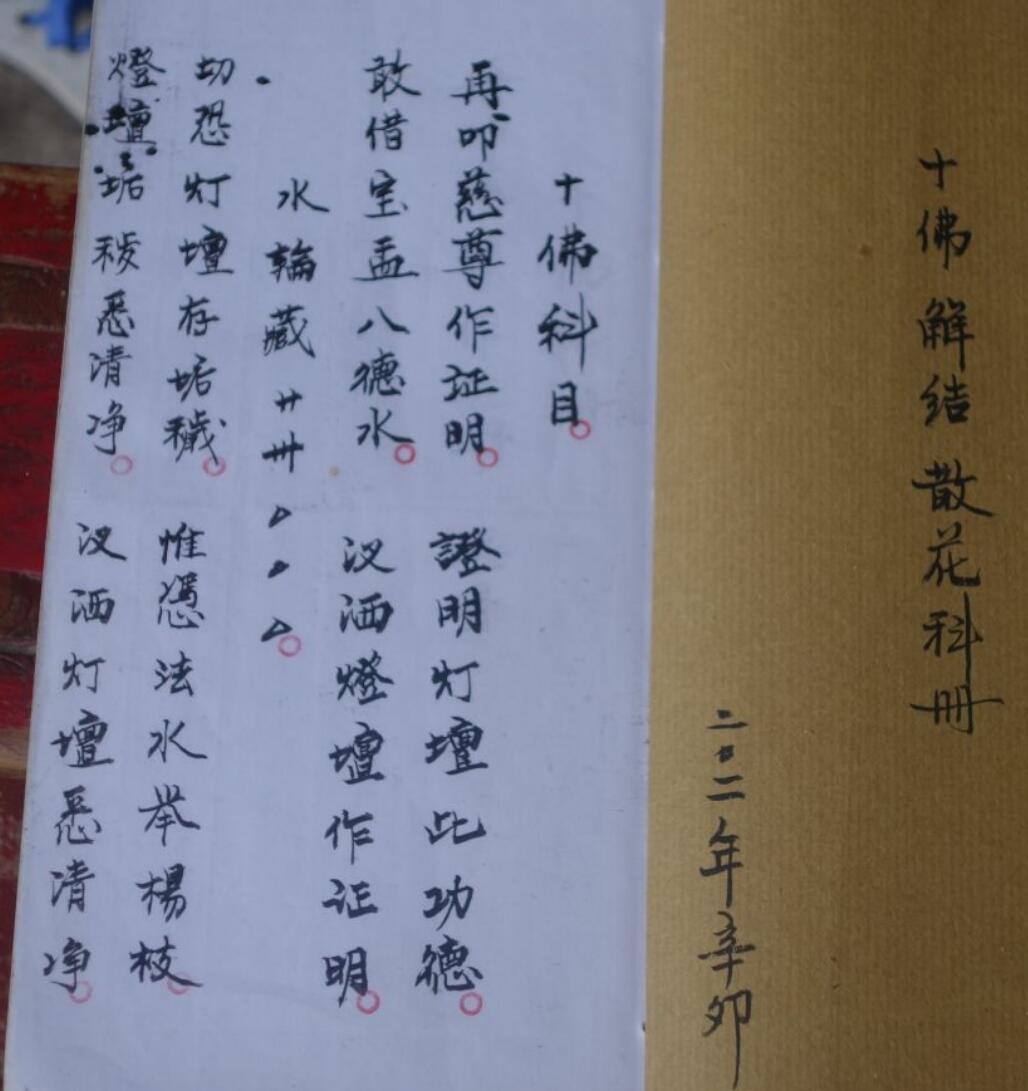 十佛解结散花科册
二0一一年辛卯
十佛科目
再叩慈尊作证明 證明灯壇此功德
敢借宝盂八德水 汉洒燈壇作证明
水輪藏
切恐灯壇存垢穢 惟憑法水举楊枝
燈壇垢秽悉清净 汉洒灯壇悉清净